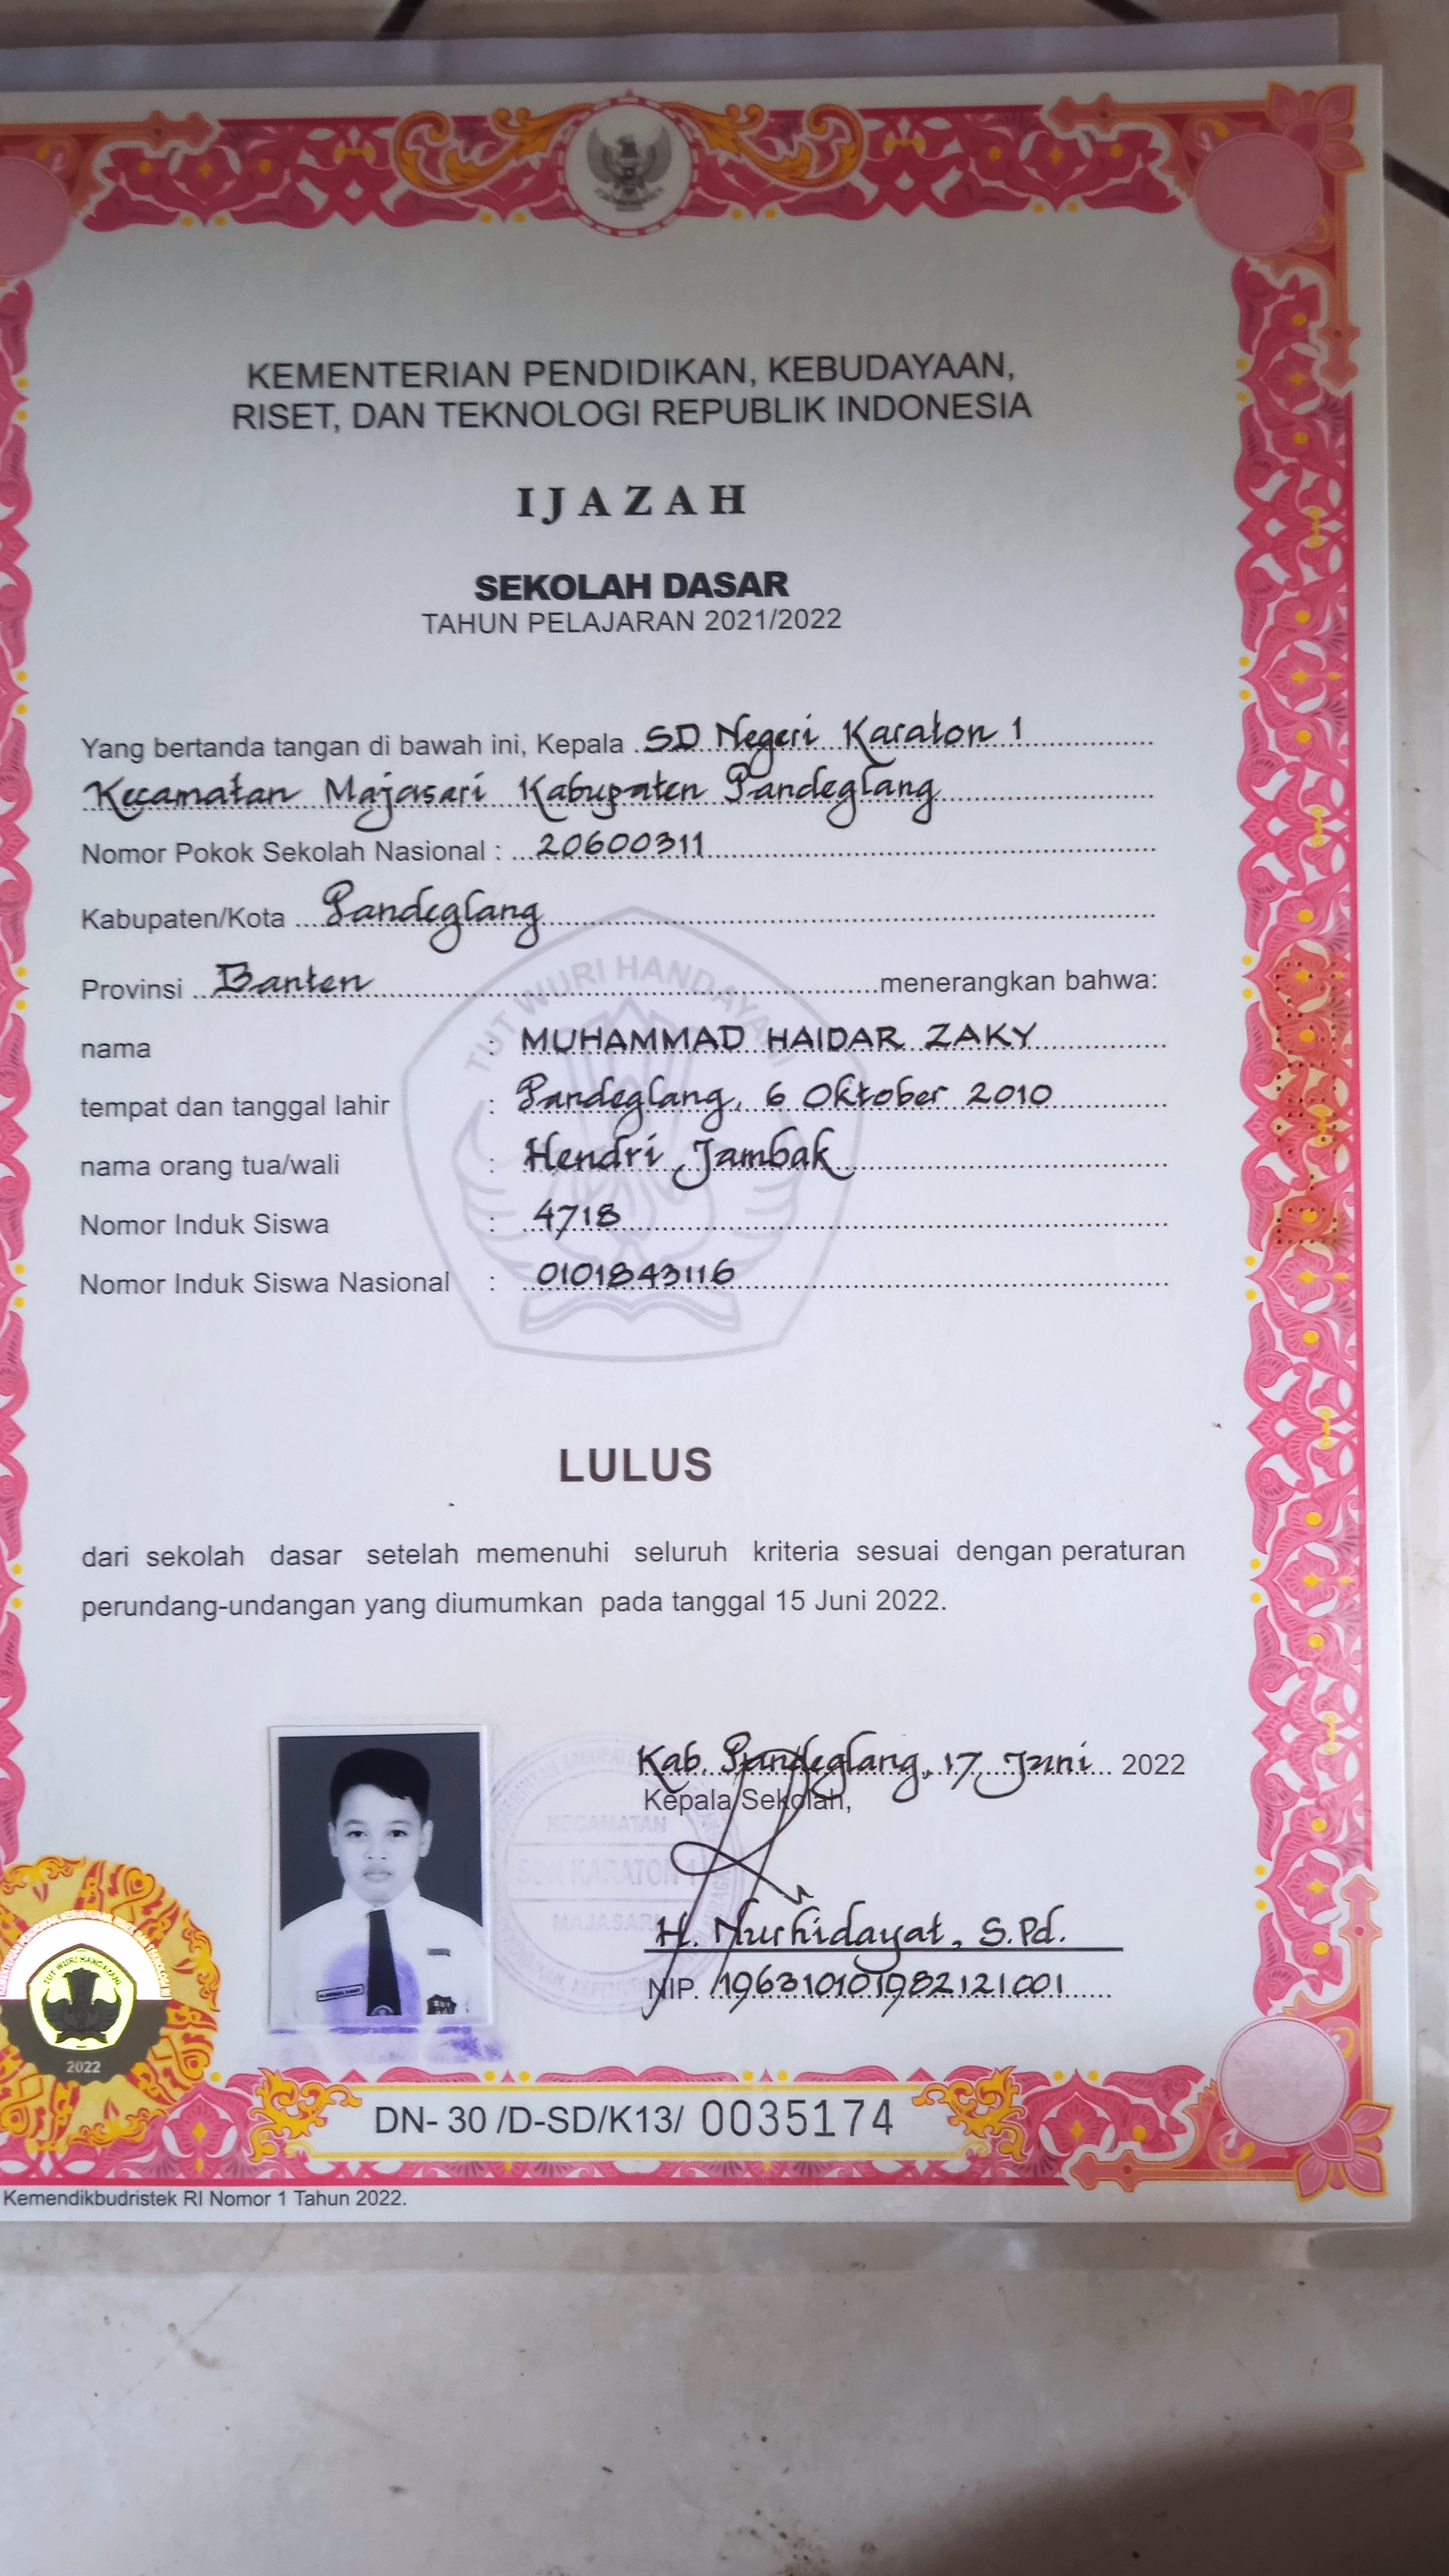 KEMENTERIAN PENDIDIKAN, KEBUDAYAAN,
RISET, DAN TEKNOLOGI REPUBLIK INDONESIA
IJAZAH
SEKOLAH DASAR
TAHUN PELAJARAN 2021/2022
Yang bertanda tangan di bawah ini, Kepala SD Negeri Karaton 1
Kecamatan Majasari Kabupaten Pandeglang
Nomor Pokok Sekolah Nasional : 20600311
Kabupaten/Kota Pandeglang
TUT WURI HANDAYANI
Provinsi Banten menerangkan bahwa:
nama : MUHAMMAD HAIDAR ZAKY
tempat dan tanggal lahir : Pandeglang, 6 Oktober 2010
nama orang tua/wali : Hendri Jambak
Nomor Induk Siswa : 4718
Nomor Induk Siswa Nasional : 0101843116
LULUS
dari sekolah dasar setelah memenuhi seluruh kriteria sesuai dengan peraturan
perundang-undangan yang diumumkan pada tanggal 15 Juni 2022.
Kab. Pandeglang, 17 Juni 2022
Kepala Sekolah,
KECAMATAN
SDN KARATON 1
MAJASARI
H. Nurhidayat, S.Pd.
NIP. 196310101982121001
TUT WURI HANDAYANI
2022
DN- 30 /D-SD/K13/ 0035174
Kemendikbudristek RI Nomor 1 Tahun 2022.